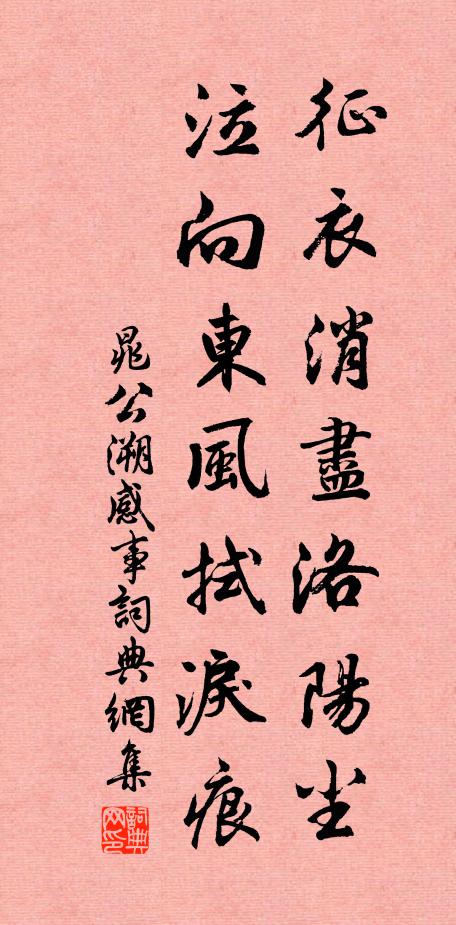 征衣消盡洛陽尘
泣向東風拭淚痕
晁公溯感事詞典網集
詞典网印